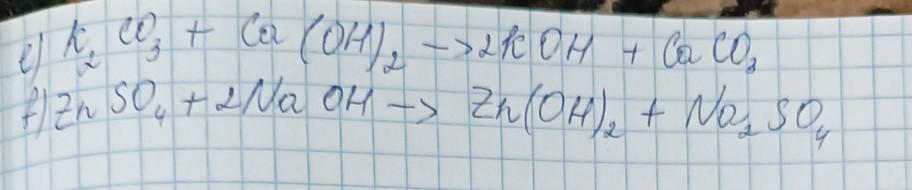 e) K₂CO₃ + Ca(OH)₂ → 2KOH + CaCO₃
f) ZnSO₄ + 2NaOH → Zn(OH)₂ + Na₂SO₄